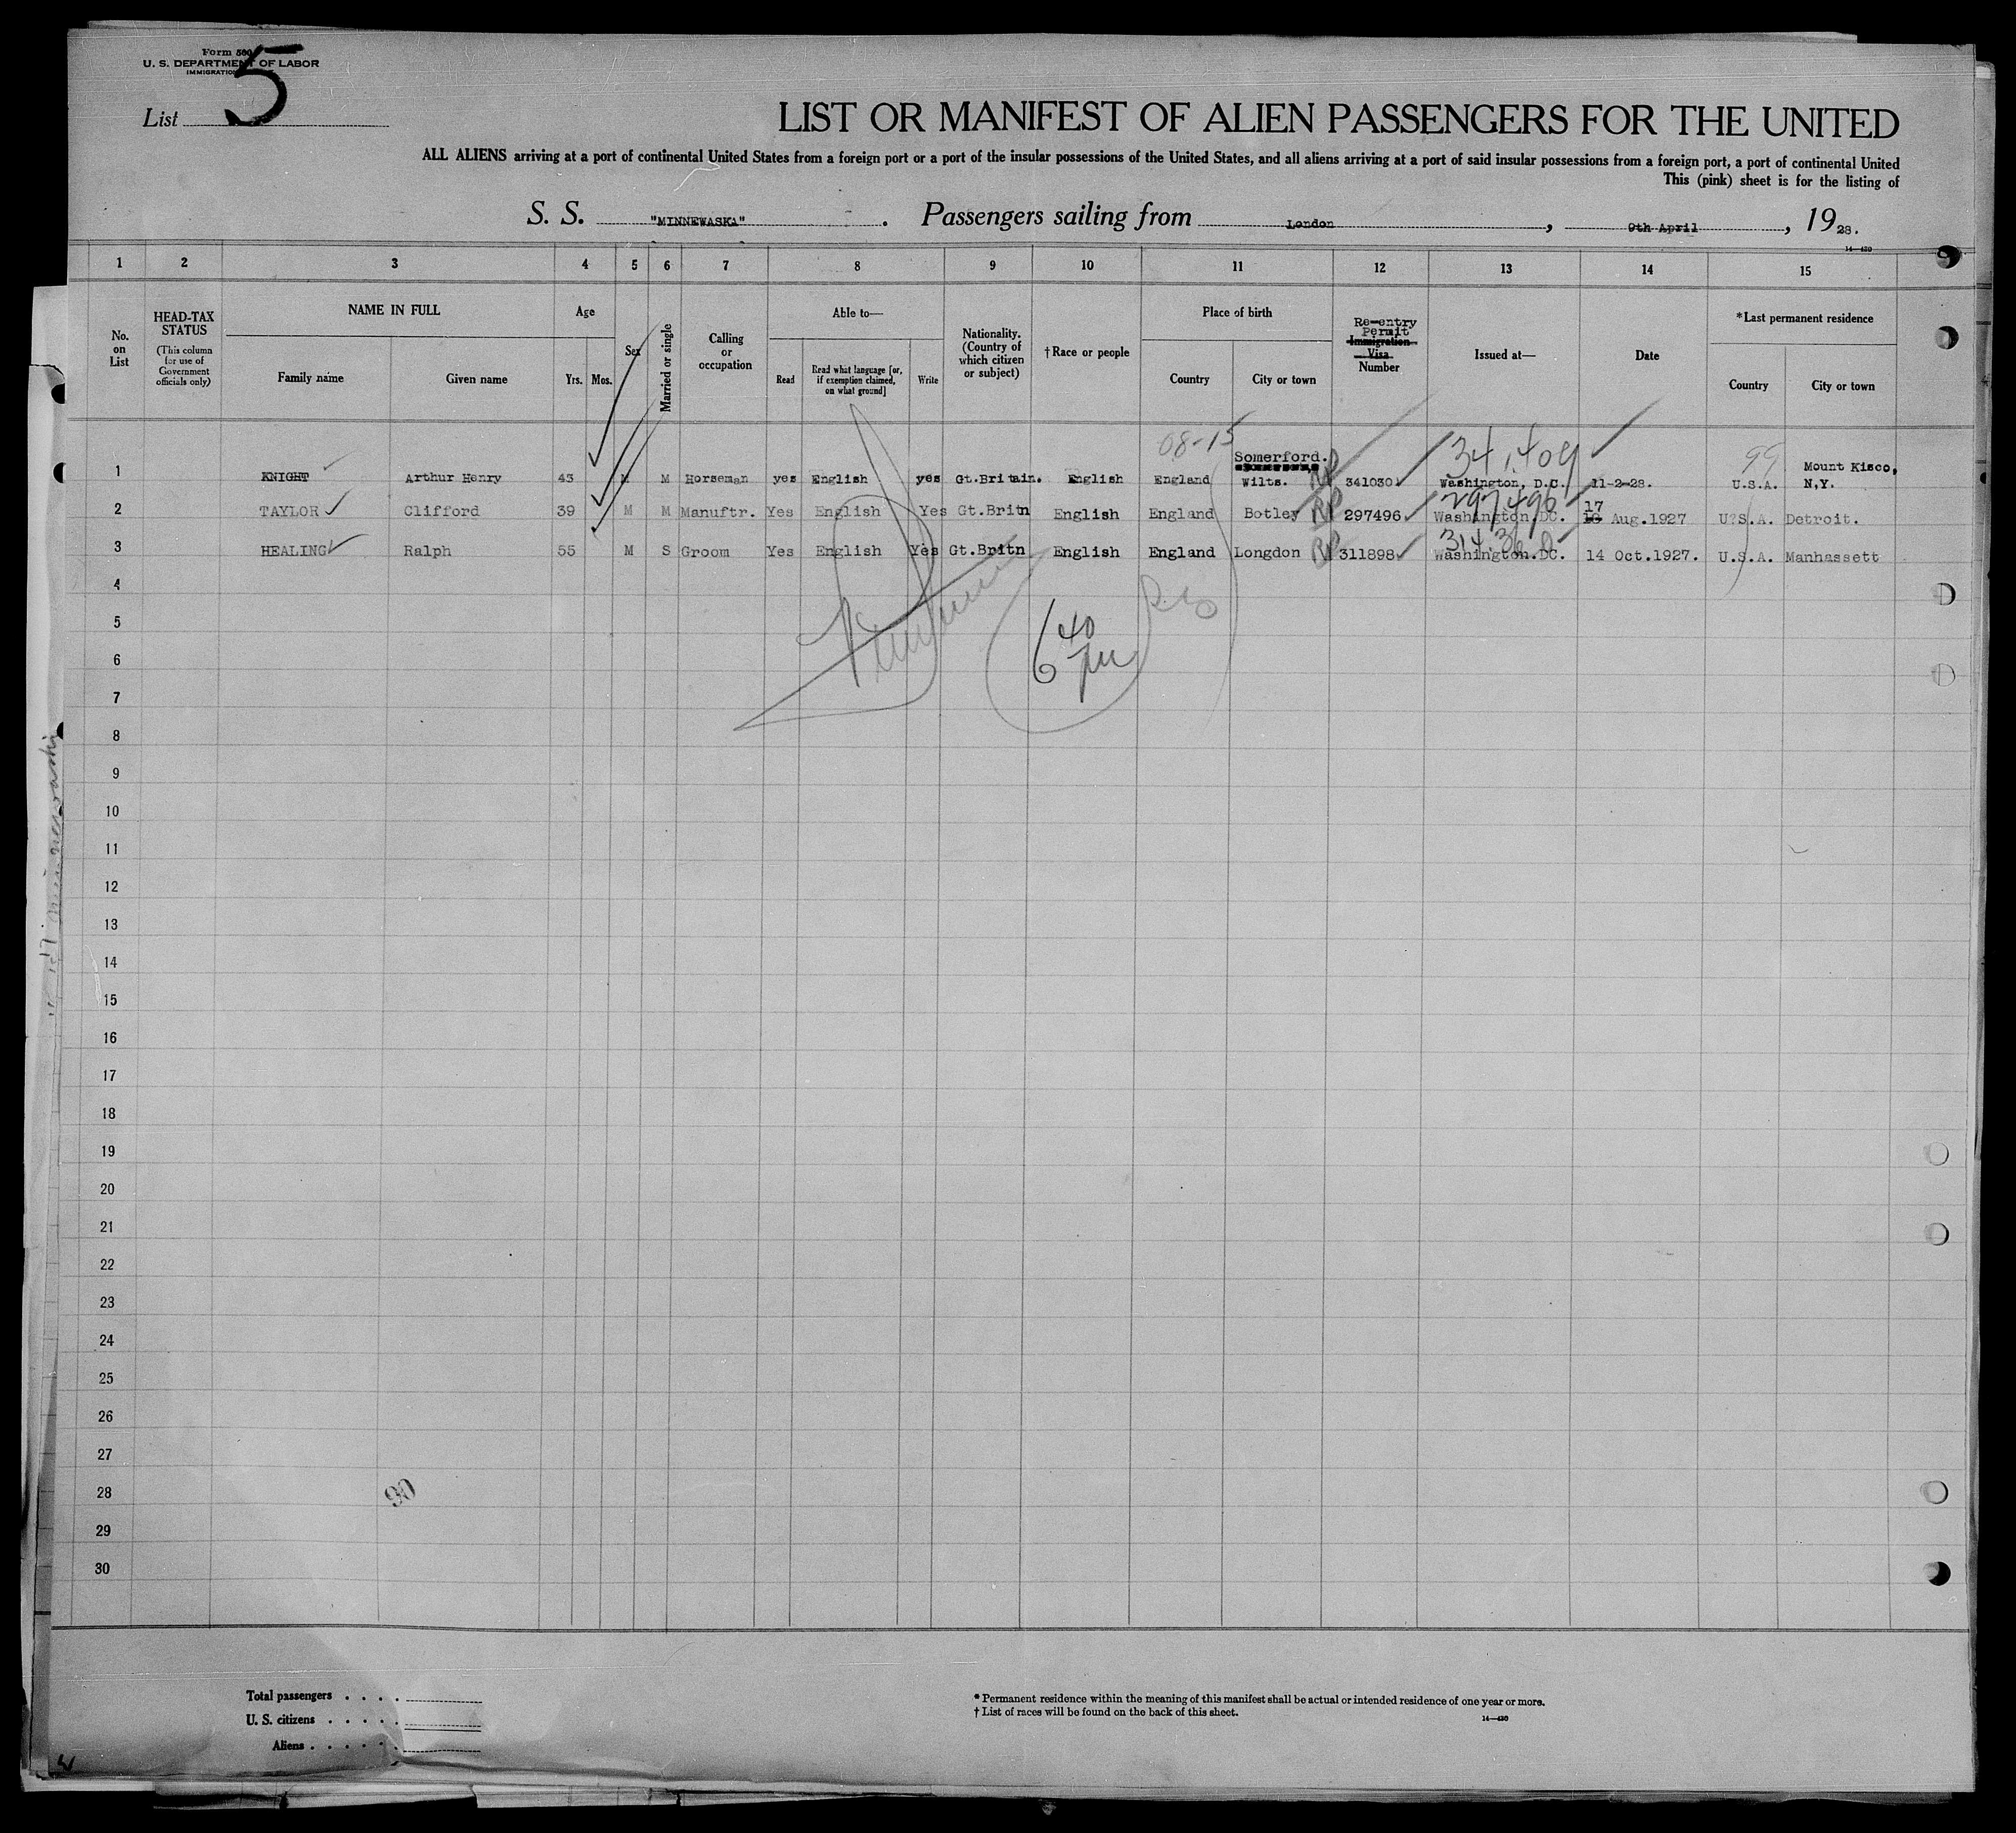 Form 500
U. S. DEPARTMENT OF LABOR
IMMIGRATION
List 5
LIST OR MANIFEST OF ALIEN PASSENGERS FOR THE UNITED
ALL ALIENS arriving at a port of continental United States from a foreign port or a port of the insular possessions of the United States, and all aliens arriving at a port of said insular possessions from a foreign port, a port of continental United
This (pink) sheet is for the listing of
S. S. "MINNEWASKA". Passengers sailing from London, 9th April, 1928.
14—420
1 2 3 4 5 6 7 8 9 10 11 12 13 14 15
No. on List
HEAD-TAX STATUS
(This column for use of Government officials only)
NAME IN FULL
Family name Given name
Age
Yrs. Mos.
Sex
Married or single
Calling or occupation
Able to—
Read
Read what language [or, if exemption claimed, on what ground]
Write
Nationality. (Country of which citizen or subject)
†Race or people
Place of birth
Country City or town
Re-entry Permit
Immigration Visa
Number
Issued at—
Date
*Last permanent residence
Country City or town
08-15 34,409 99
1 KNIGHT Arthur Henry 43 M M Horseman yes English yes Gt.Britain. English England Somerford. Wilts. RP 341030 Washington, D.C. 11-2-28. U.S.A. Mount Kisco, N,Y.
297496
2 TAYLOR Clifford 39 M M Manuftr. Yes English Yes Gt.Britn English England Botley RP 297496 Washington,DC. 17 Aug.1927 U?S.A. Detroit.
3 HEALING Ralph 55 M S Groom Yes English Yes Gt.Britn English England Longdon RP 311898 Washington.DC. 14 Oct.1927. U.S.A. Manhassett
4
5
6 40
7
8
9
10
11
12
13
14
15
16
17
18
19
20
21
22
23
24
25
26
27
28
90
29
30
Total passengers . . . .
U. S. citizens . . . . .
Aliens . . . . . .
* Permanent residence within the meaning of this manifest shall be actual or intended residence of one year or more.
† List of races will be found on the back of this sheet.
14—420